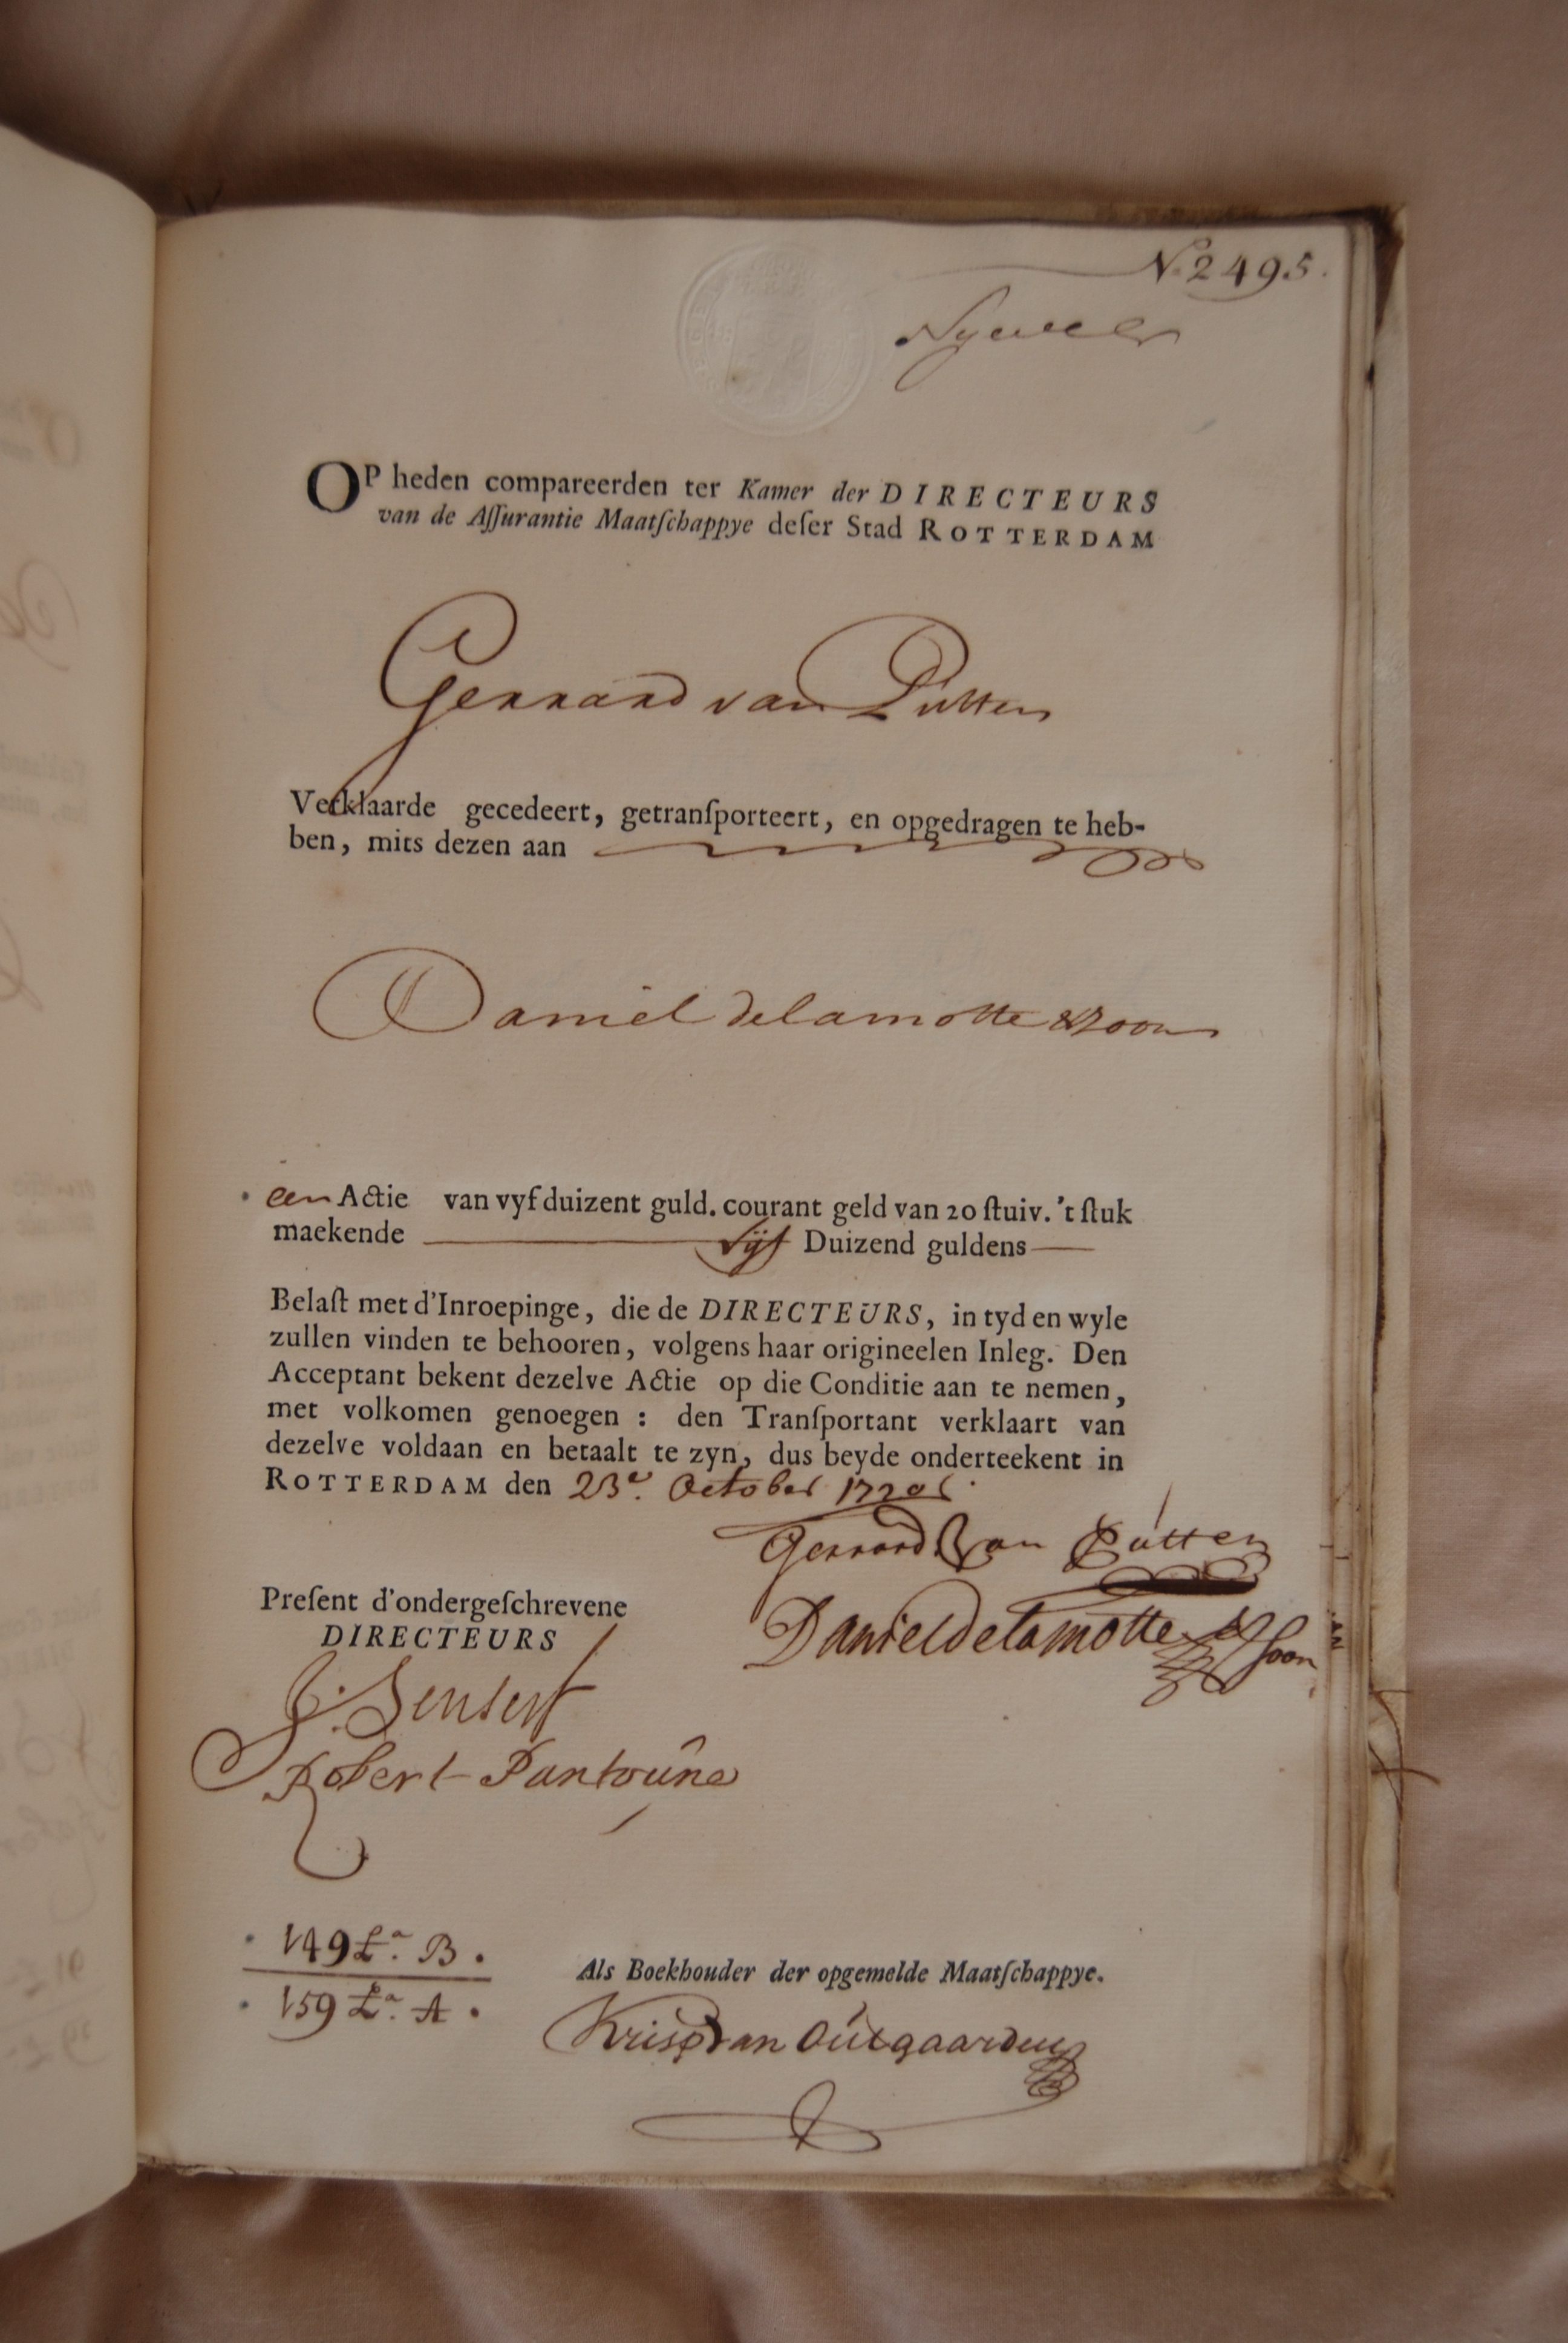 N. 2495.
OP heden compareerden ter Kamer der DIRECTEURS
van de Aſſurantie Maatſchappye deſer Stad ROTTERDAM
Gerrard van Putten
Verklaarde gecedeert, getranſporteert, en opgedragen te heb-
ben, mits dezen aan
Daniel delamotte & Zoon
een Actie van vyf duizent guld. courant geld van 20 ſtuiv. 't ſtuk
maekende Vijf Duizend guldens
Belaſt met d'Inroepinge, die de DIRECTEURS, in tyd en wyle
zullen vinden te behooren, volgens haar origineelen Inleg. Den
Acceptant bekent dezelve Actie op die Conditie aan te nemen,
met volkomen genoegen : den Tranſportant verklaart van
dezelve voldaan en betaalt te zyn, dus beyde onderteekent in
ROTTERDAM den 23e. October 1720
Gerrard Van Putten
Preſent d'ondergeſchrevene
DIRECTEURS
Daniel de Lamotte & Soon
J. Sensert
Robert Pantoune
149 La. B.
159 La. A.
Als Boekhouder der opgemelde Maatſchappye.
Krisp van Outgaarden